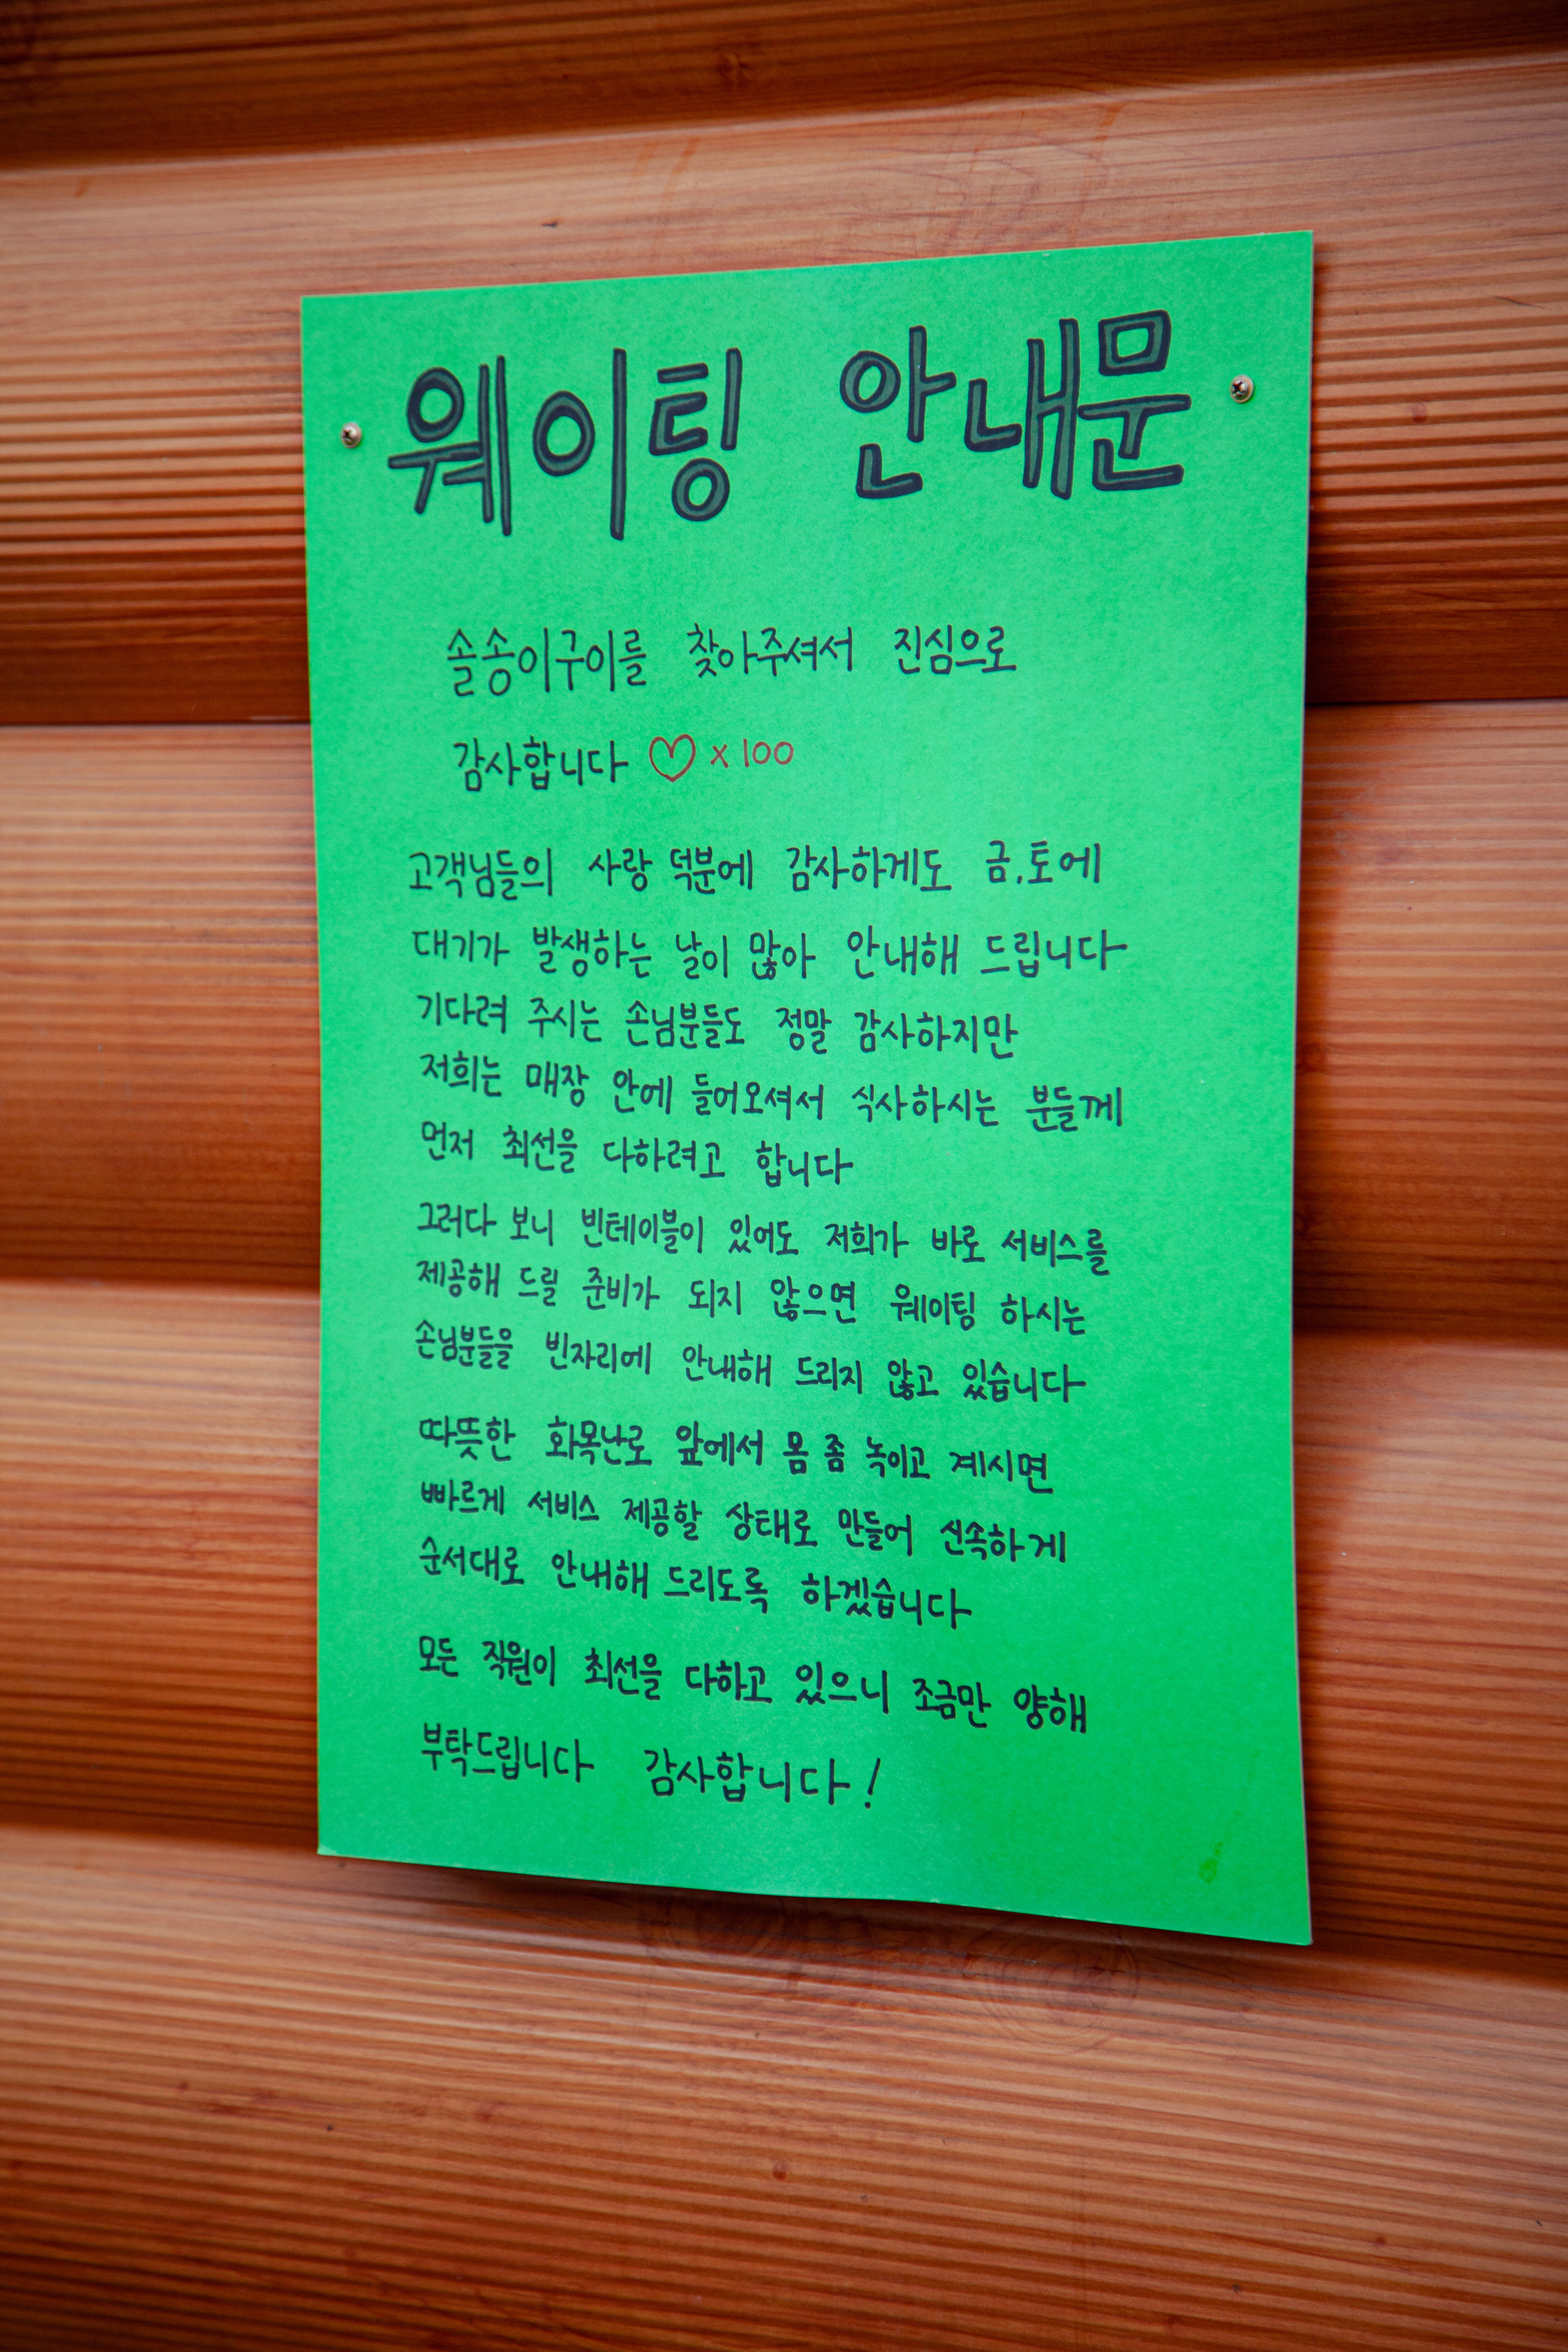 웨이팅 안내문
솔송이구이를 찾아주셔서 진심으로
감사합니다 ♡ x 100
고객님들의 사랑 덕분에 감사하게도 금,토에
대기가 발생하는 날이 많아 안내해 드립니다
기다려 주시는 손님분들도 정말 감사하지만
저희는 매장 안에 들어오셔서 식사하시는 분들께
먼저 최선을 다하려고 합니다
그러다 보니 빈테이블이 있어도 저희가 바로 서비스를
제공해 드릴 준비가 되지 않으면 웨이팅 하시는
손님분들을 빈자리에 안내해 드리지 않고 있습니다
따뜻한 화목난로 앞에서 몸 좀 녹이고 계시면
빠르게 서비스 제공할 상태로 만들어 신속하게
순서대로 안내해 드리도록 하겠습니다
모든 직원이 최선을 다하고 있으니 조금만 양해
부탁드립니다 감사합니다!